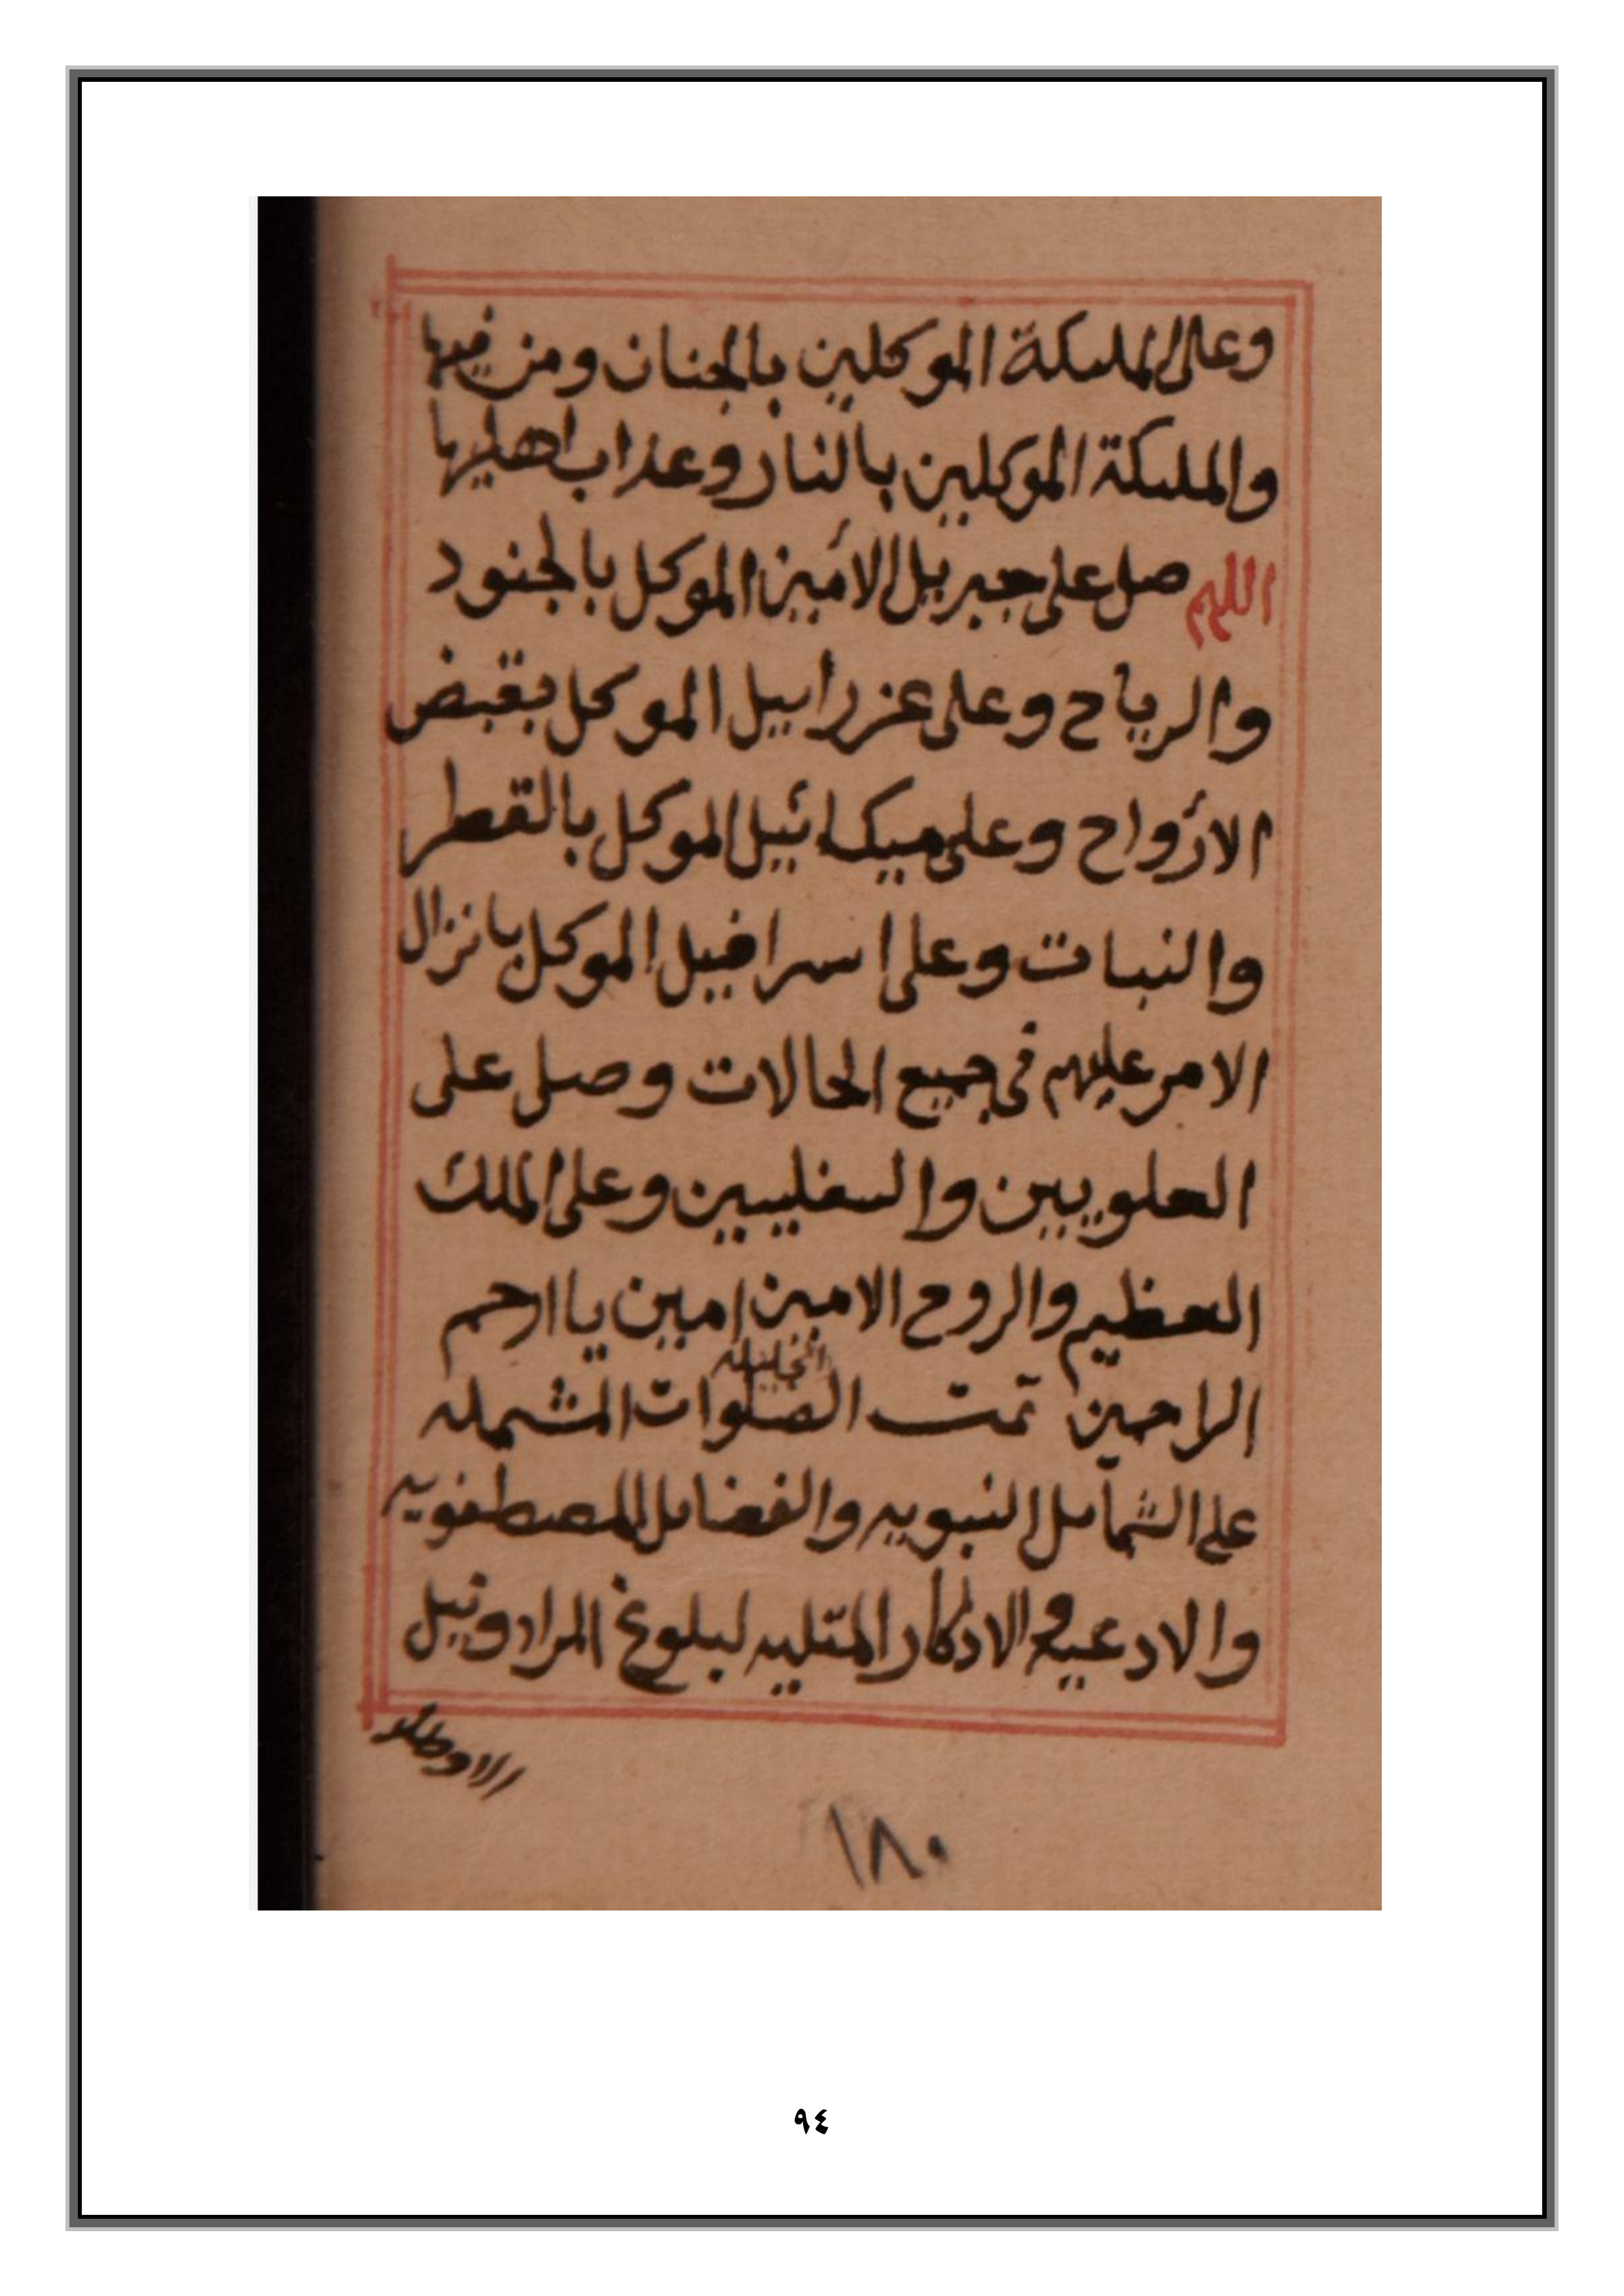 وعلى الملىكة الموكلين بالجنان ومن فيها
والملىكة الموكلين بالنار وعذاب اهليها
اللهم صل على جبريل الامين الموكل بالجنود
والرياح وعلى عزرابيل الموكل بقبض
الارواح وعلى ميكائيل الموكل بالقطر
والنبات وعلى اسرافيل الموكل بانزال
الامر عليهم في جميع الحالات وصل على
العلويين والسفليين وعلى الملك
العظيم والروح الامين امين يا ارحم
الراحمين تمت الصلوات المشمله
على الشمآىل النبويه والفضاىل المصطفويه
والادعيه والاذكار المتليه لبلوغ المراد ونيل
١٨٠
٩٤